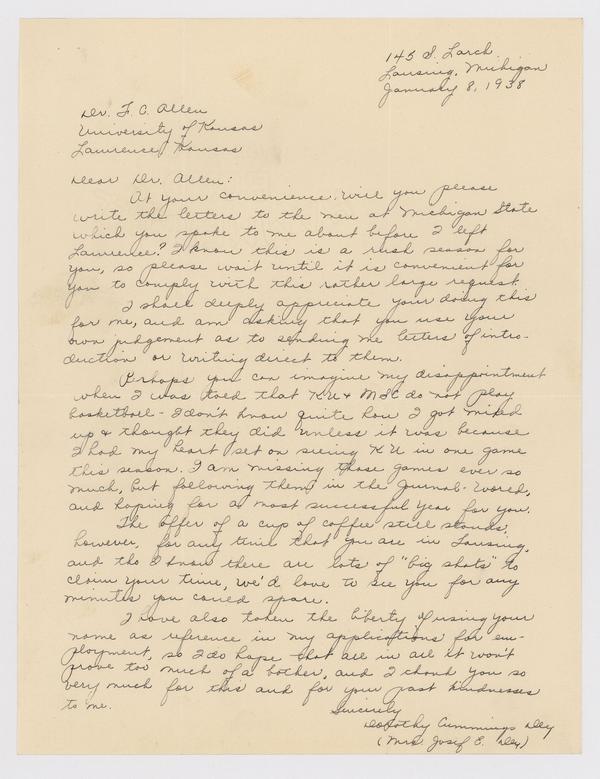 145 S. Larch
Lansing, Michigan
January 8, 1938
Dr. F. C. Allen
University of Kansas
Lawrence, Kansas
Dear Dr. Allen:
At your convenience, will you please
write the letters to the men at Michigan State
which you spoke to me about before I left
Lawrence? I know this is a rush season for
you, so please wait until it is convenient for
you to comply with this rather large request.
I shall deeply appreciate your doing this
for me, and am asking that you use your
own judgement as to sending me letters of intro-
duction or writing direct to them.
Perhaps you can imagine my disappointment
when I was told that KU & MSC do not play
basketball - I don't know quite how I got mixed
up & thought they did unless it was because
I had my heart set on seeing KU in one game
this season. I am missing those games ever so
much, but following them in the Journal-World,
and hoping for a most successful year for you.
The offer of a cup of coffee still stands,
however, for any time that you are in Lansing,
and tho I know there are lots of "big shots" to
claim your time, we'd love to see you for any
minutes you could spare.
I have also taken the liberty of using your
name as reference in my applications for em-
ployment, so I do hope that all in all it won't
prove too much of a bother, and I thank you so
very much for this and for your past kindnesses
to me.
Sincerely
Dorothy Cummings Dey
(Mrs. Josef E. Dey)